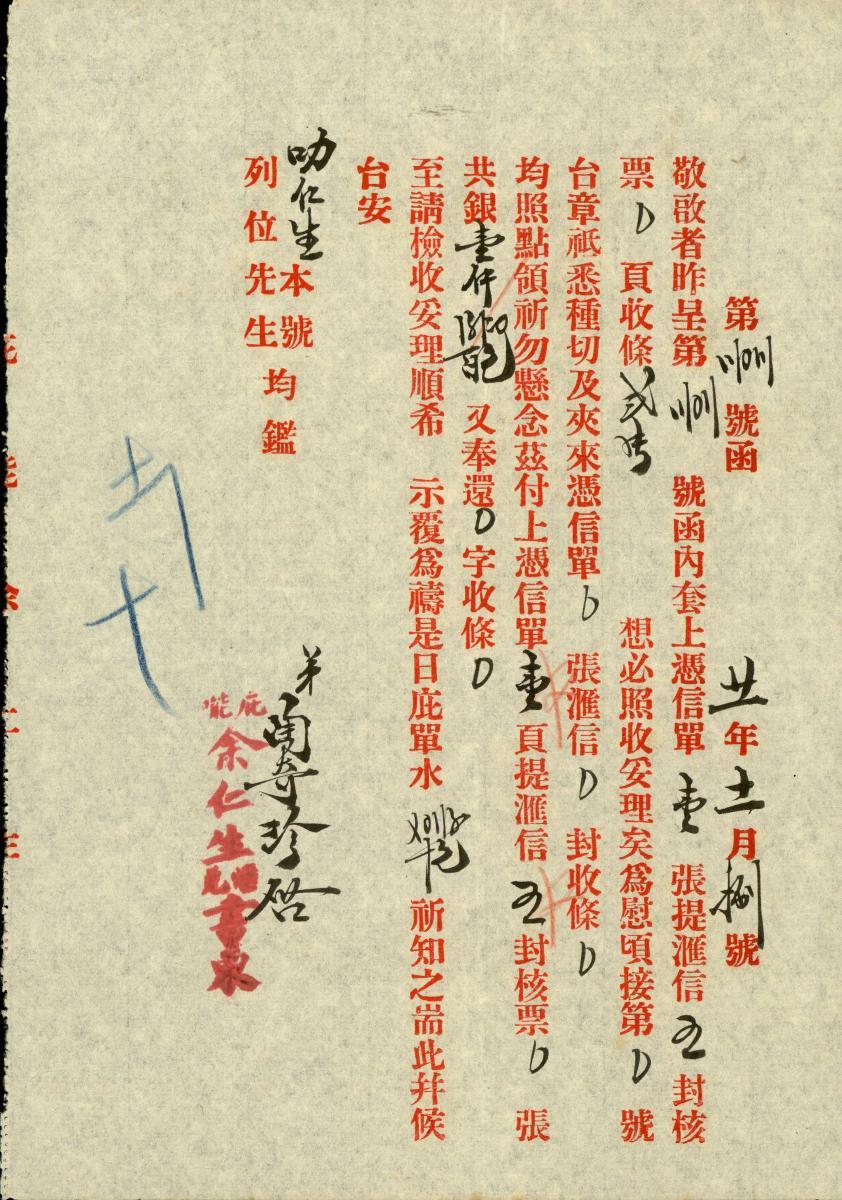 第 號函 廿年十一月捌號
敬啟者昨呈第 號函內套上憑信單壹張提滙信五封核
票0頁收條 想必照收妥理矣為慰頃接第0號
台章祗悉種切及夾來憑信單0張滙信0封收條0
均照點領祈勿懸念茲付上憑信單壹頁提滙信五封核票0張
共銀壹仟 又奉還0字收條0
至請檢收妥理順希 示覆為禱是日庇單水 祈知之耑此并候
台安
叻仁生本號
列位先生均鑑
弟 奇珍啓
庇能
余仁生
書柬